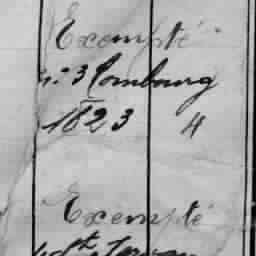 Exempté
n° 3 Combourg
1823 4
Exempté